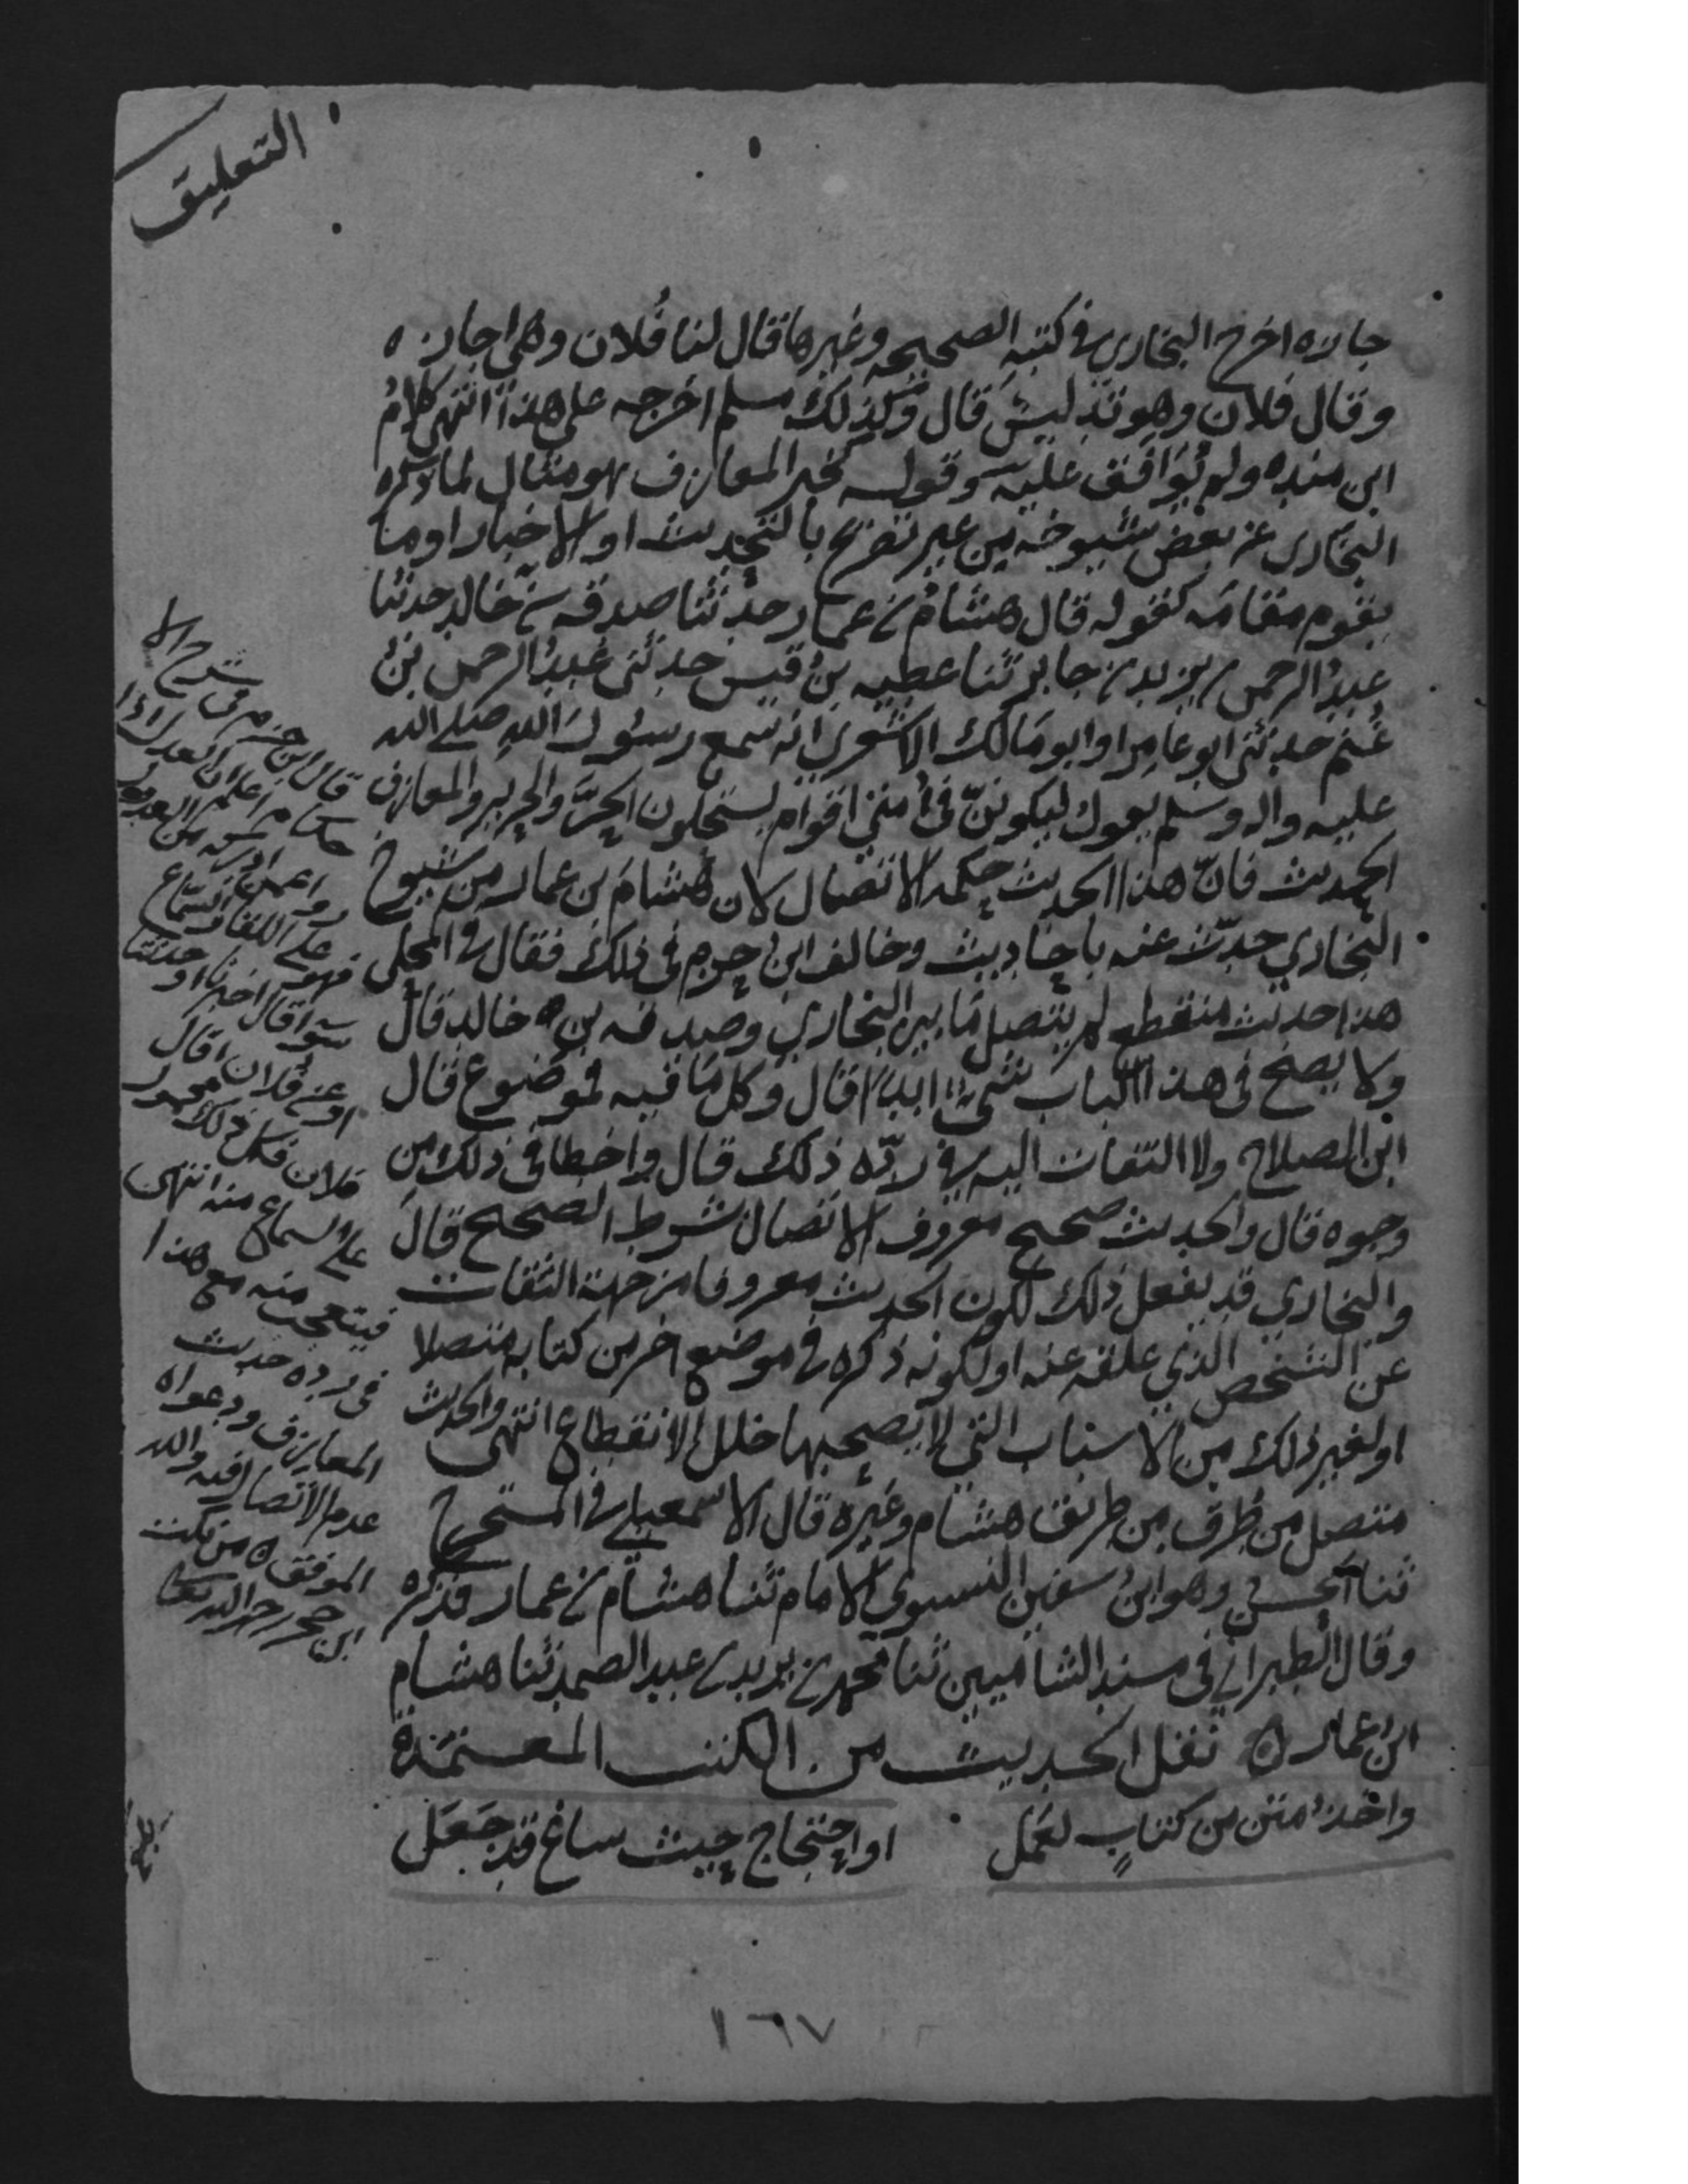 التعليق
جازه اخرج البخاري في كتبه الصحيحه وغيرها قال لنا فلان وهي اجازه
وقال فلان وهو تدليس قال وكذلك مسلم اخرجه على هذا انتهى كلام
ابن منده ولم يوافق عليه وقوله كخبر المعازف هو مثال لما ذكره
البخاري عن بعض شيوخه من غير تصريح بالتحديث او الاخبار او ما
يقوم مقامه كقوله قال هشام بن عمار حدثنا صدقه بن خالد حدثنا
عبد الرحمن بن يزيد بن جابر ثنا عطيه بن قيس حدثني عبد الرحمن بن
غنم حدثني ابو عامر او ابو مالك الاشعري انه سمع رسول الله صلى الله
عليه واله وسلم يقول ليكونن في امتي اقوام يستحلون الحر والحرير والمعازف
الحديث فان هذا الحديث حكمه الاتصال لان هشام بن عمار من شيوخ
البخاري حدث عنه باحاديث وخالف ابن حزم في ذلك فقال في المحلى
هذا حديث منقطع لم يتصل ما بين البخاري وصدقه بن خالد قال
ولا يصح في هذا الباب شيء ابدا قال وكل ما فيه فموضوع قال
ابن الصلاح ولا التفات اليه في رده ذلك قال واخطا في ذلك من
وجوه قال والحديث صحيح معروف الاتصال بشرط الصحيح قال
والبخاري قد يفعل ذلك لكون الحديث معروفا من جهة الثقات
عن الشخص الذي علقه عنه او لكونه ذكره في موضع اخر من كتابه متصلا
او لغير ذلك من الاسباب التي لا يصحبها خلل الانقطاع انتهى والحديث
متصل من طرق من طريق هشام وغيره قال الاسمعيلي في المستخرج
ثنا الحسن وهو ابن سفين النسوي الامام ثنا هشام بن عمار فذكره
وقال الطبراني في مسند الشاميين ثنا محمد بن يزيد بن عبد الصمد ثنا هشام
ابن عمار ه نقل الحديث من الكتب المعتمدة
واخذ متن من كتاب لعمل او احتجاج حيث ساغ قد جعل
قال ابن حزم في
اعلم ان العدل اذا
على اللقا والسماع
فهو
سوا قال اخبرنا او حدثنا
او عن فلان او قال
فلان فكل ذلك محمول
على السماع منه انتهى
فيتعجب منه مع هذا
في رده حديث
المعازف ودعواه
عدم الاتصال فيه والله
الموفق ه من نكت
ابن حجر رحمه الله تعالى
١٦٧